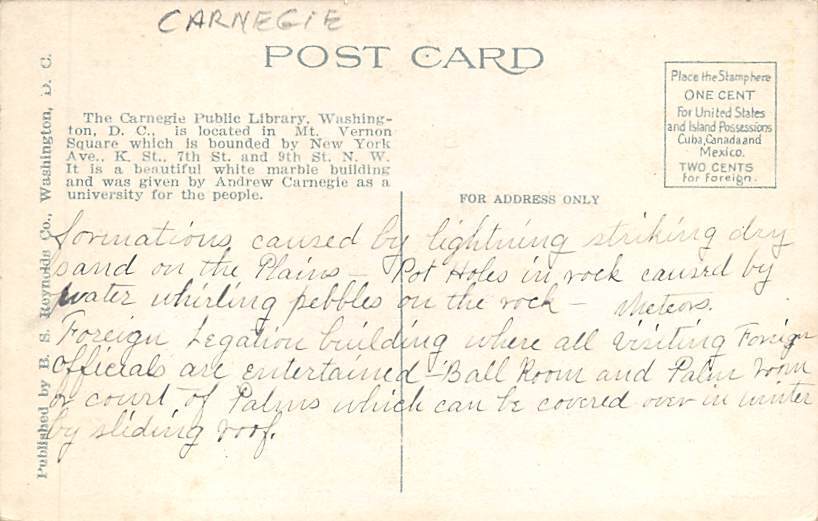 CARNEGIE
POST CARD
Place the Stamp here
ONE CENT
For United States
and Island Possessions
Cuba, Canada and
Mexico.
TWO CENTS
for Foreign.
The Carnegie Public Library, Washing-
ton, D. C., is located in Mt. Vernon
Square which is bounded by New York
Ave., K. St., 7th St. and 9th St. N. W.
It is a beautiful white marble building
and was given by Andrew Carnegie as a
university for the people.
FOR ADDRESS ONLY
Published by B. S. Reynolds Co., Washington, D. C.
formations caused by lightning striking dry
sand on the Plains — Pot Holes in rock caused by
water whirling pebbles on the rock — Meteors.
Foreign Legation building where all Visiting Foreign
Officials are entertained - Ball Room and Palm room
or court of Palms which can be covered over in winter
by sliding roof.